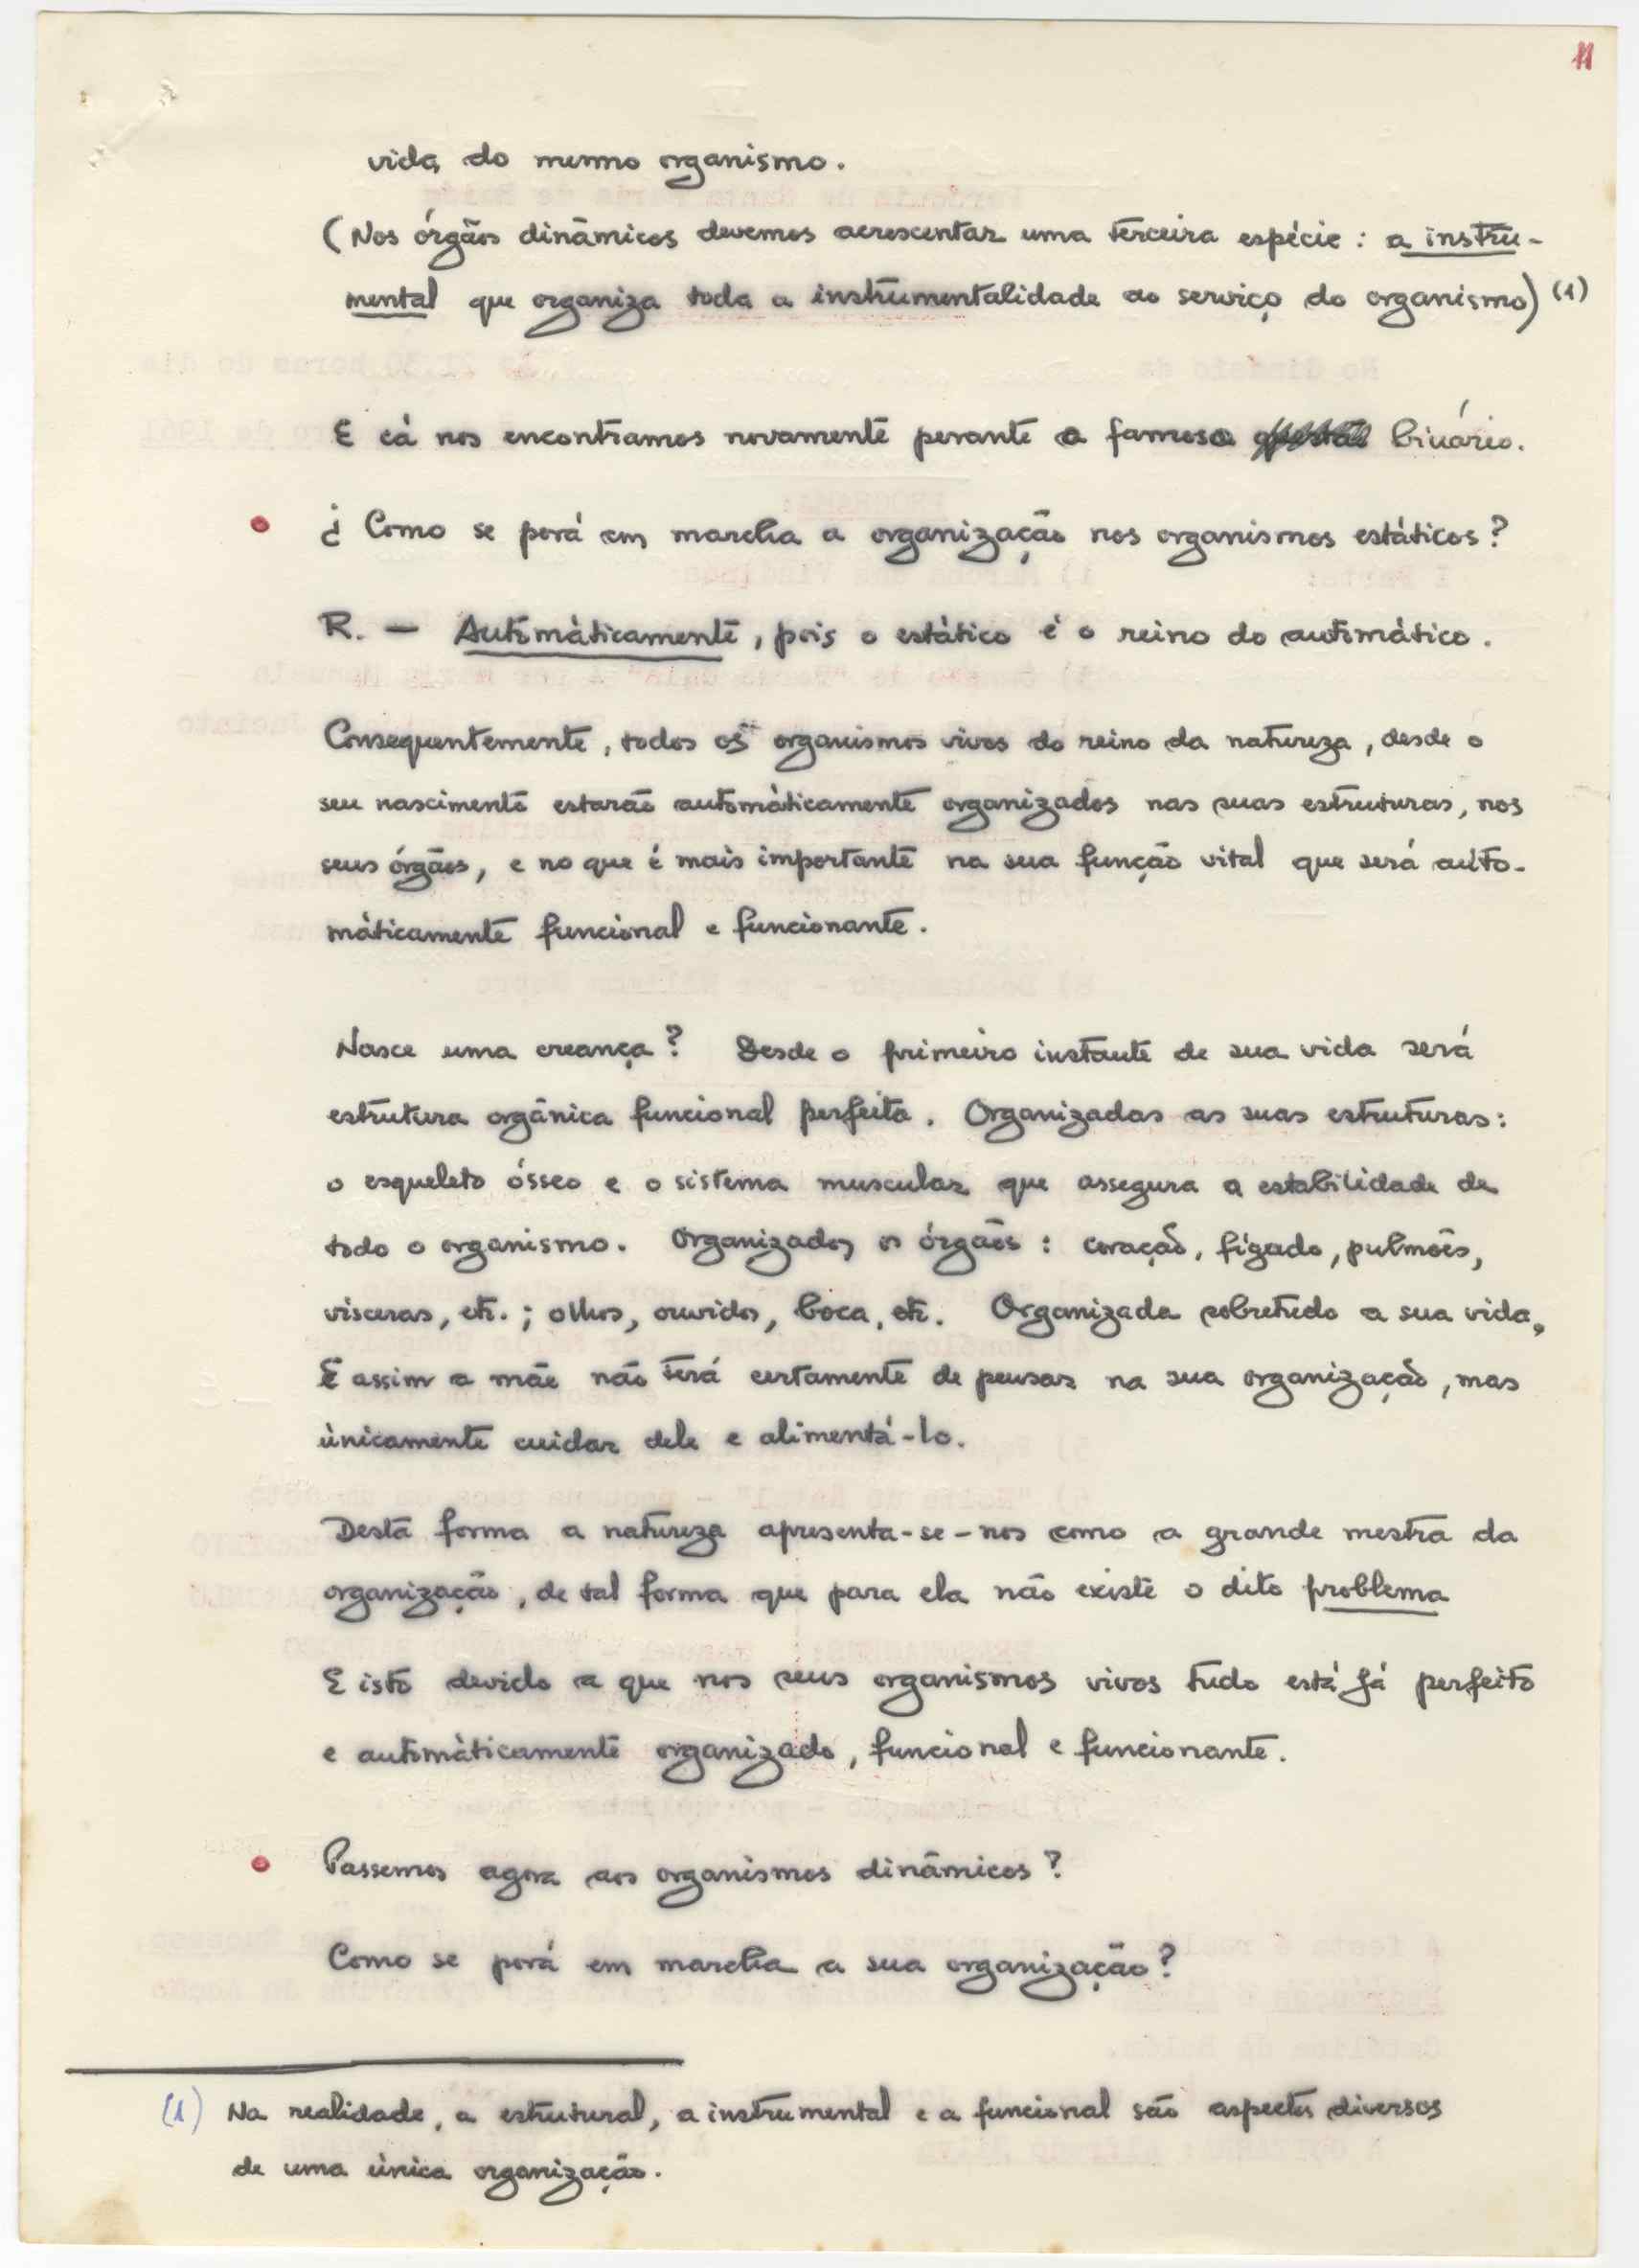 11
vida do mesmo organismo.
(Nos órgãos dinâmicos devemos acrescentar uma terceira espécie: a instru-
mental que organiza toda a instrumentalidade ao serviço do organismo) (1)
E cá nos encontramos novamente perante o famoso binário.
¿ Como se porá em marcha a organização nos organismos estáticos?
R. — Automàticamente, pois o estático é o reino do automático.
Consequentemente, todos os organismos vivos do reino da natureza, desde o
seu nascimento estarão automàticamente organizados nas suas estruturas, nos
seus órgãos, e no que é mais importante na sua função vital que será auto-
màticamente funcional e funcionante.
Nasce uma creança? Desde o primeiro instante de sua vida será
estrutura orgânica funcional perfeita. Organizadas as suas estruturas:
o esqueleto ósseo e o sistema muscular que assegura a estabilidade de
todo o organismo. Organizados os órgãos: coração, fígado, pulmões,
vísceras, etc.; olhos, ouvidos, boca, etc. Organizada sobretudo a sua vida,
E assim a mãe não terá certamente de pensar na sua organização, mas
ùnicamente cuidar dele e alimentá-lo.
Desta forma a natureza apresenta-se-nos como a grande mestra da
organização, de tal forma que para ela não existe o dito problema
E isto devido a que nos seus organismos vivos tudo está já perfeito
e automàticamente organizado, funcional e funcionante.
Passemos agora aos organismos dinâmicos?
Como se porá em marcha a sua organização?
(1) Na realidade, a estrutural, a instrumental e a funcional são aspectos diversos
de uma única organização.